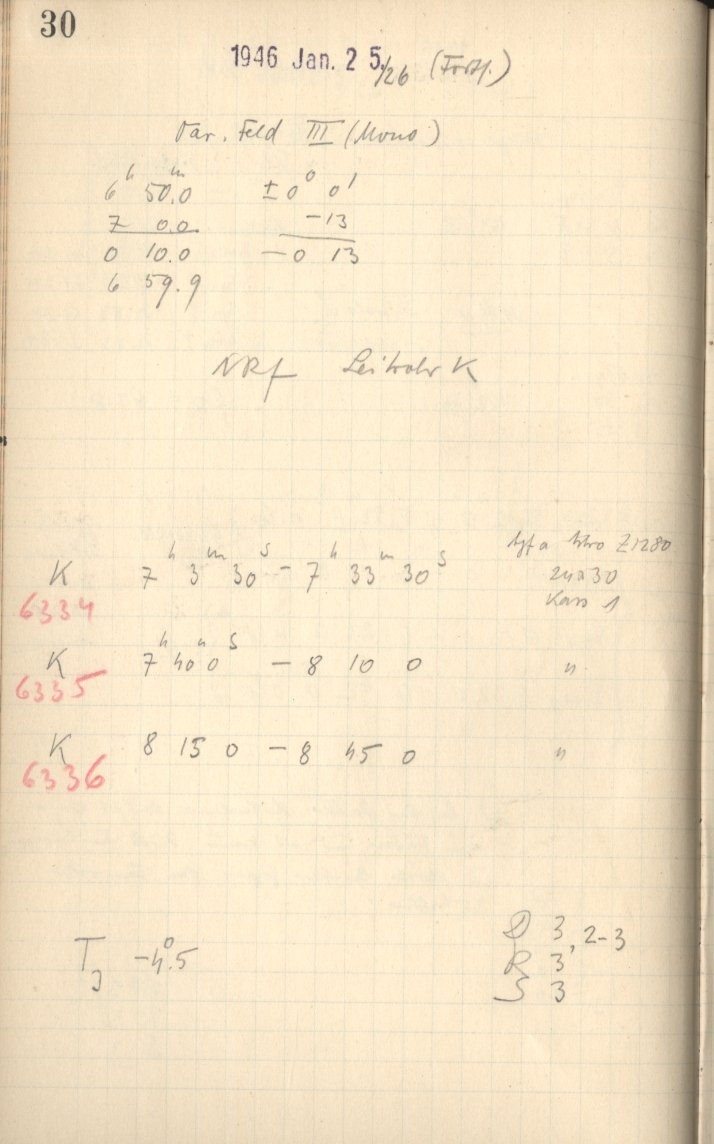 30
1946 Jan. 25./26 (Forts.)
Var. Feld III (Mono)
6h 50m.0 ±0° 0'
7 0.0 -13
0 10.0 -0 13
6 59.9
NRf Leitrohr K
K 7h 3m 30s - 7h 33m 30s
24x30
Kass 1
6334
K 7h 40m 0s - 8 10 0 "
6335
K 8 15 0 - 8 45 0 "
6336
T -4°.5
D 3, 2-3
R 3
S 3